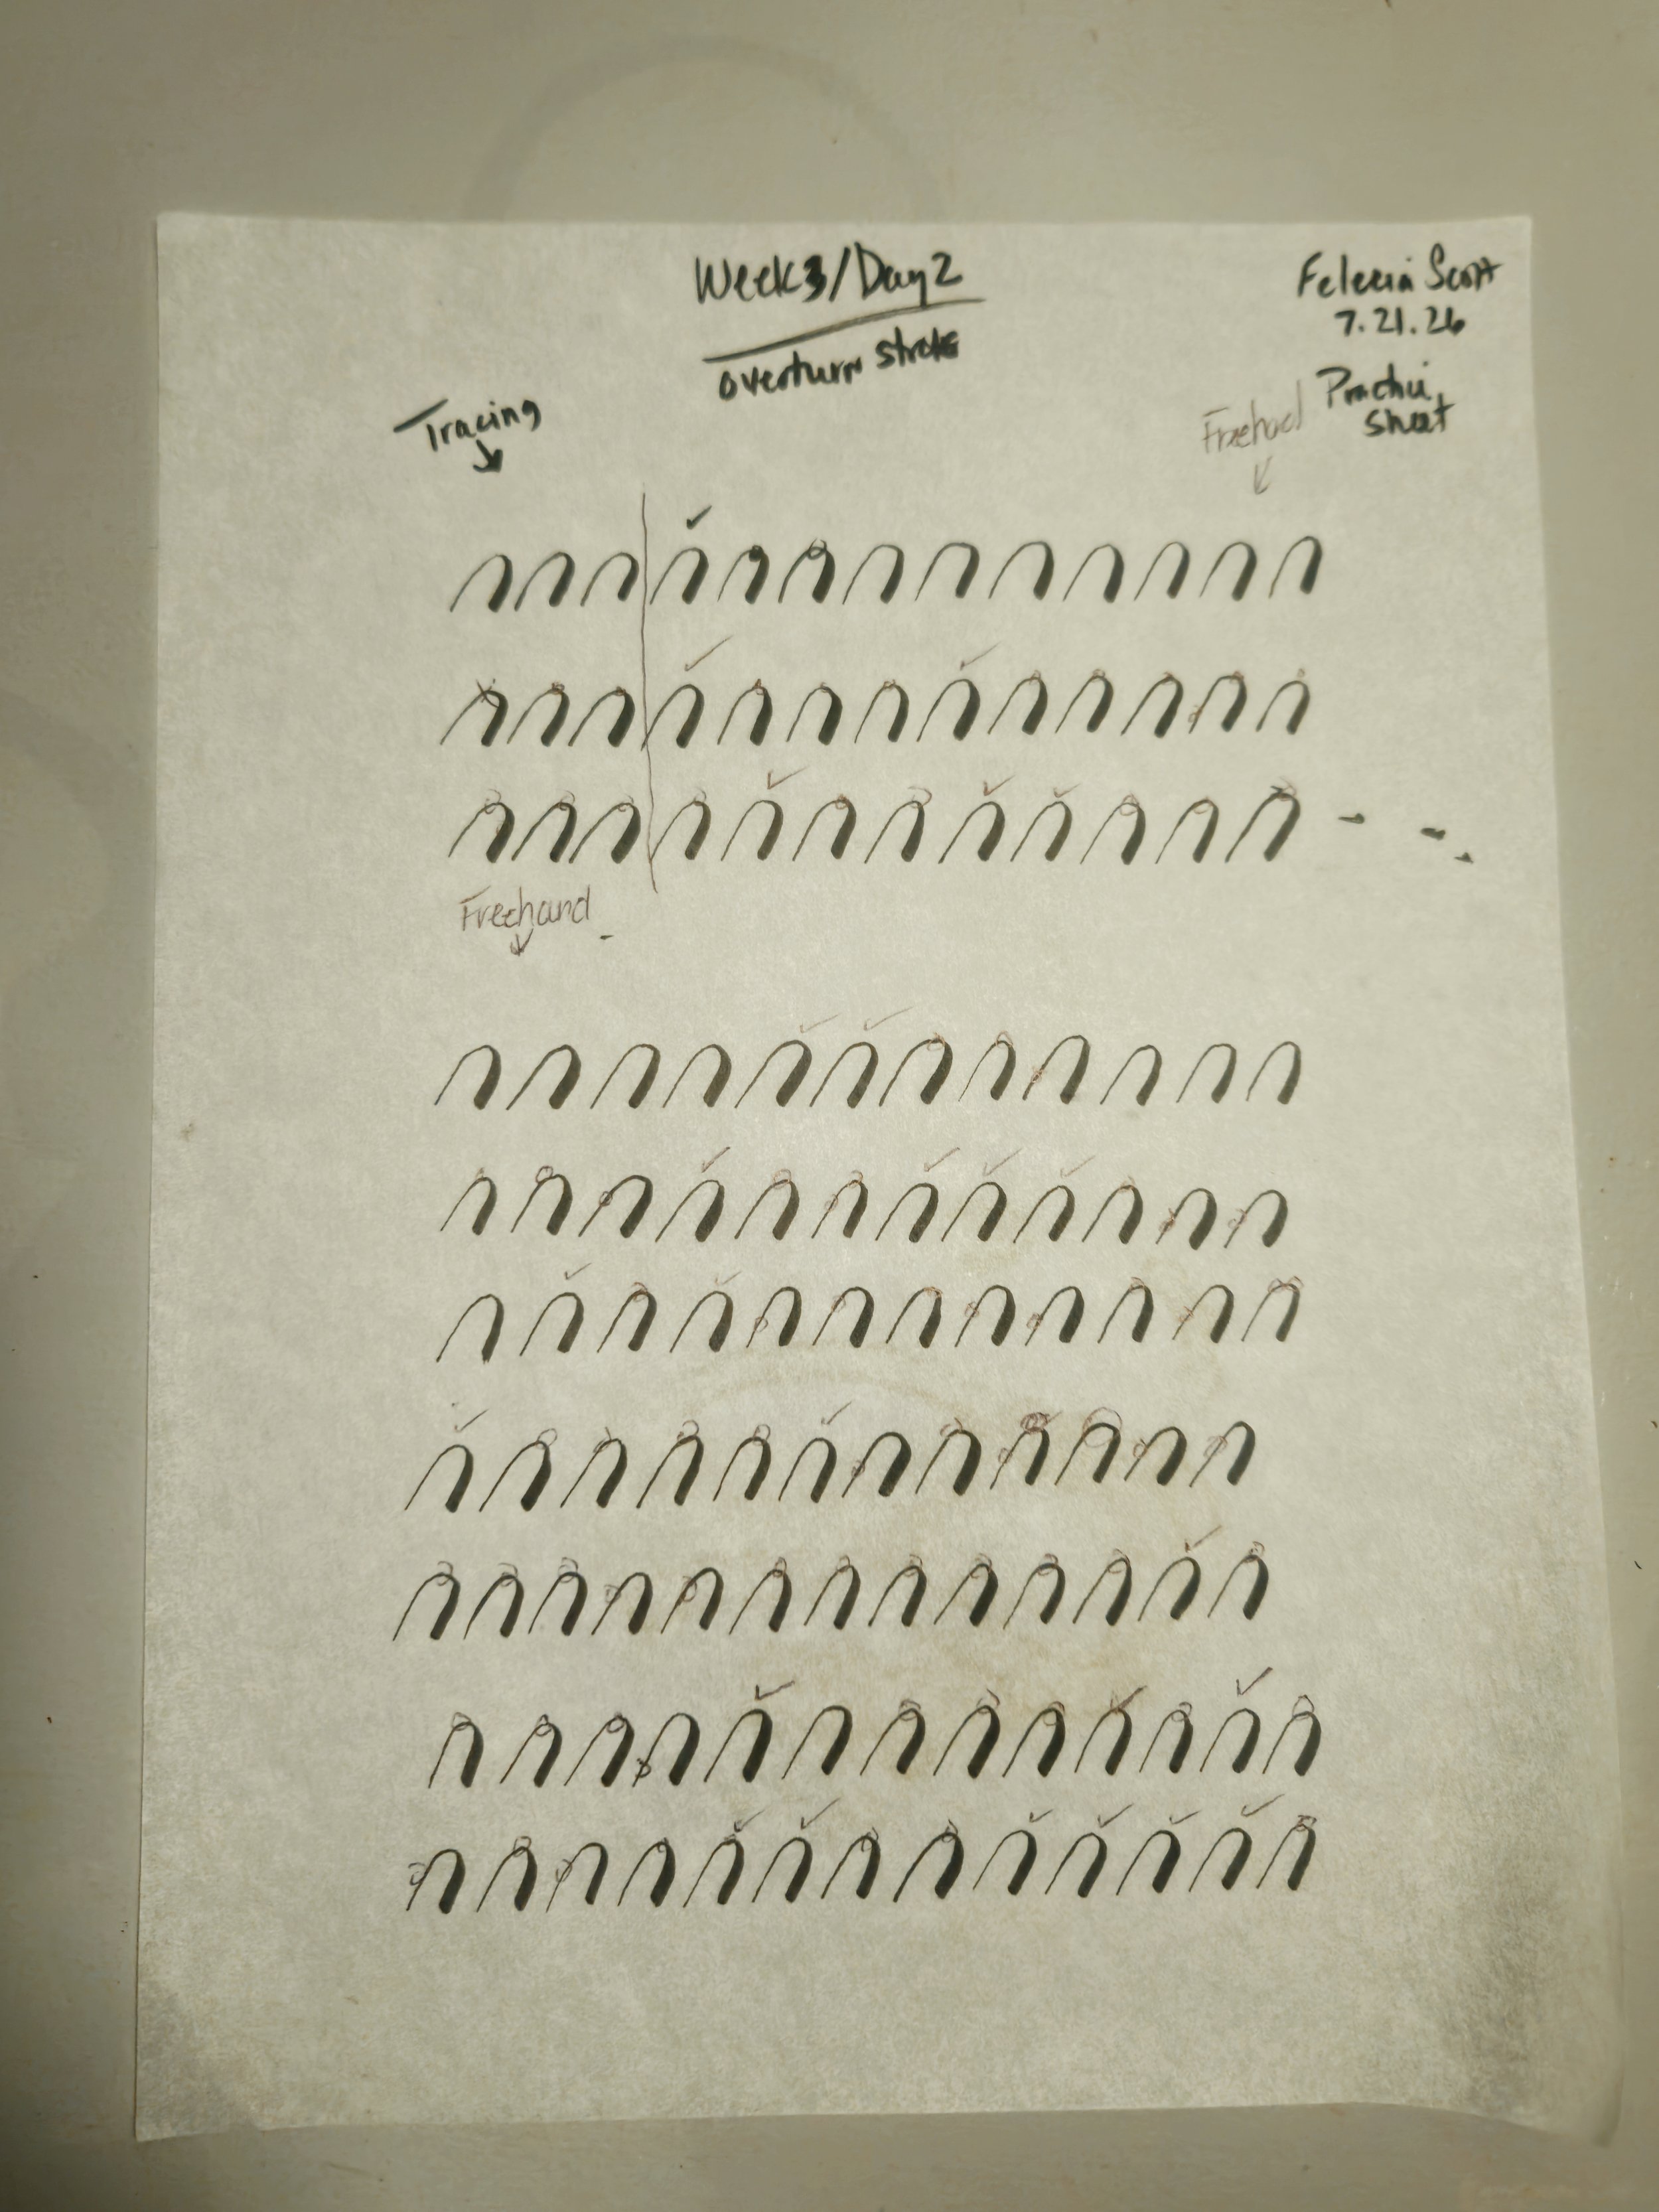 Week3/Day2
overturn stroke
Felecia Scott
7.21.26
Practice
Sheet
Tracing
Freehand
Freehand